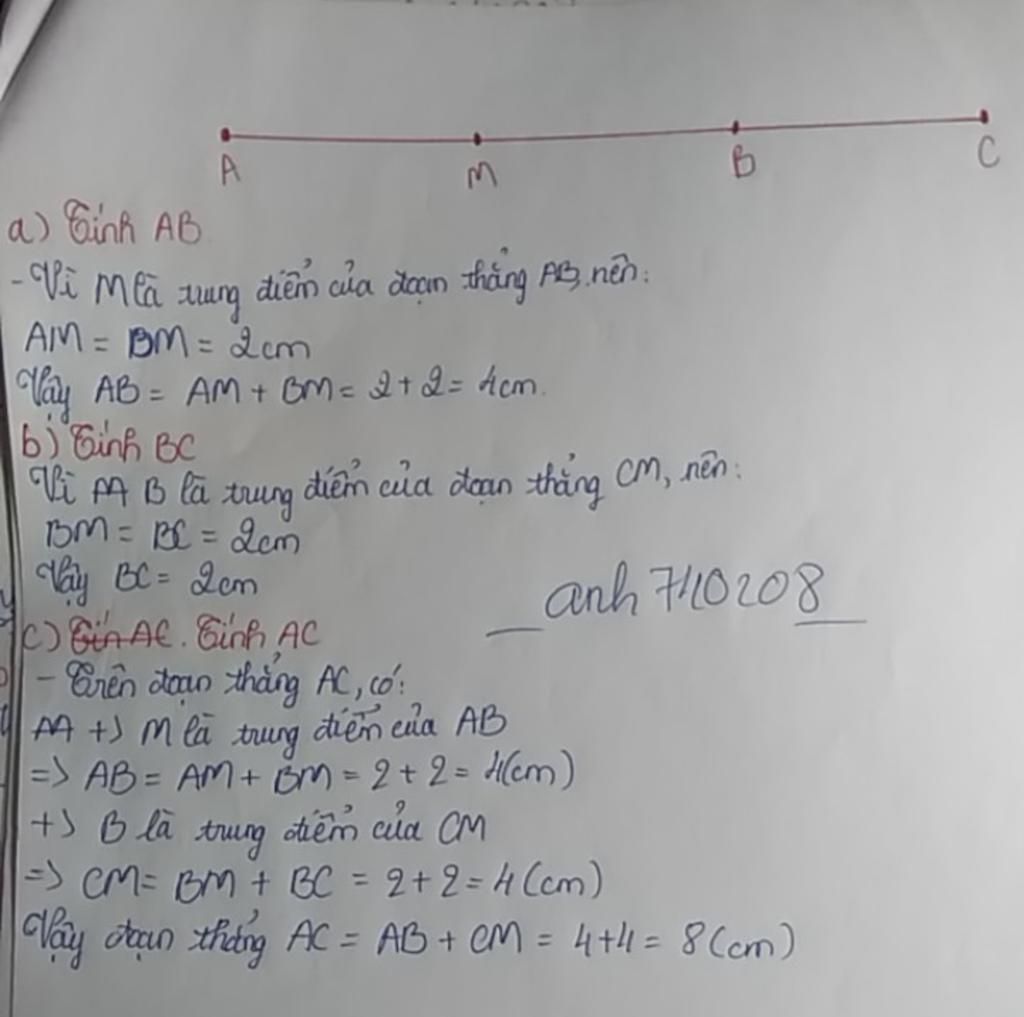 A M B C
a) Tính AB
- Vì M là trung điểm của đoạn thẳng AB, nên:
AM = BM = 2cm
Vậy AB = AM + BM = 2 + 2 = 4cm.
b) Tính BC
Vì B là trung điểm của đoạn thẳng CM, nên:
BM = BC = 2cm
Vậy BC = 2cm
anh7110208
c) Tính AC. Tính AC
- Trên đoạn thẳng AC, có:
+) M là trung điểm của AB
=> AB = AM + BM = 2 + 2 = 4(cm)
+) B là trung điểm của CM
=> CM = BM + BC = 2 + 2 = 4 (cm)
Vậy đoạn thẳng AC = AB + CM = 4+4 = 8 (cm)